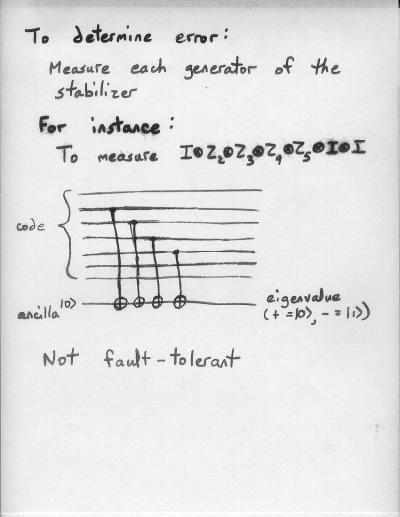 To determine error:
Measure each generator of the
stabilizer
For instance:
To measure I⊗Z₂⊗Z₃⊗Z₄⊗Z₅⊗I⊗I
code
ancilla |0⟩
eigenvalue
(+ = |0⟩, - = |1⟩)
Not fault-tolerant